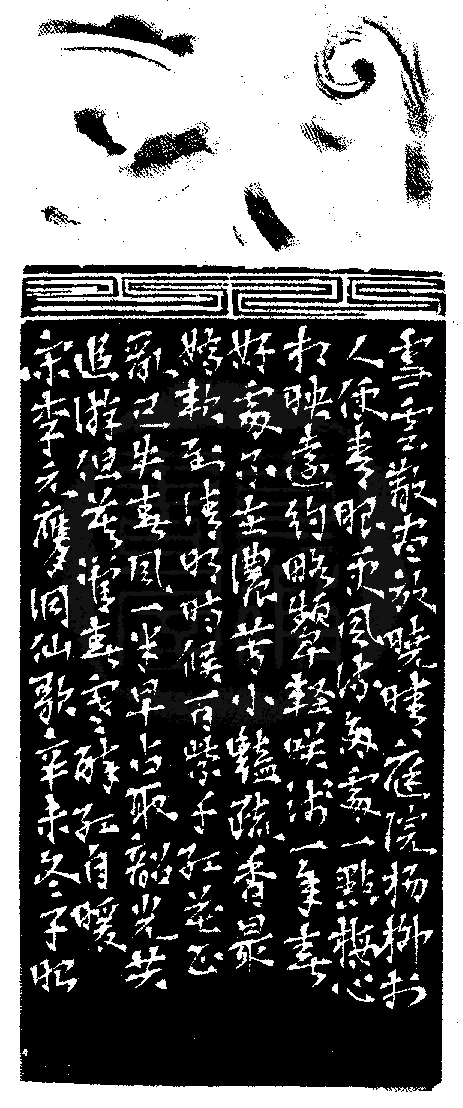 雪雲散尽放曉晴庭院杨柳於
人便青眼更風流多處一點梅心
相映遠約略顰輕咲淺一年春
好處不在濃芳小豔疏香最
嬌軟到清明時候百紫千紅花正
亂已失春風一半早占取韶光共
追游但莫管春寒醉紅自暖
宋李元膺洞仙歌辛未冬子